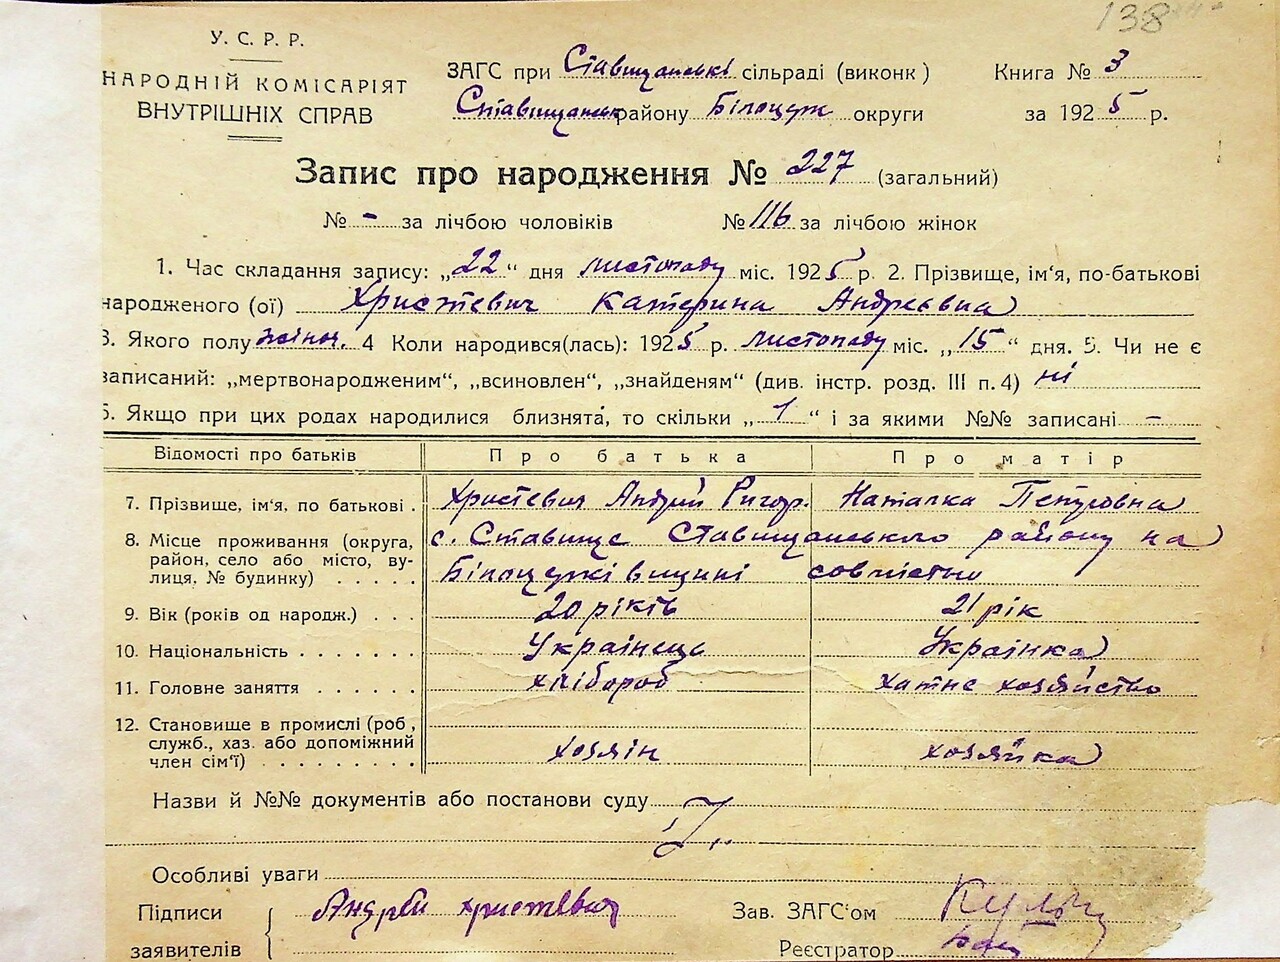 138
У. С. Р. Р.
НАРОДНІЙ КОМІСАРІЯТ
ВНУТРІШНІХ СПРАВ
ЗАГС при Ставищанські сільраді (виконк)
Ставищанськ району Білоцерк округи
Книга № 3
за 1925 р.
Запис про народження № 227 (загальний)
№ - за лічбою чоловіків № 116 за лічбою жінок
1. Час складання запису: „22“ дня листопаду міс. 1925 р 2. Прізвище, ім'я, по-батькові
народженого (ої) Христевич Катерина Андреєвна
3. Якого полу жіноч. 4 Коли народився(лась): 1925 р. листопаду міс. „15“ дня. 5. Чи не є
записаний: „мертвонародженим“, „всиновлен“, „знайденям“ (див. інстр. розд. III п. 4) ні
6. Якщо при цих родах народилися близнята, то скільки „1“ і за якими №№ записані -
Відомості про батьків Про батька Про матір
7. Прізвище, ім'я, по батькові . Христевич Андрій Ригор. Наталка Петровна
8. Місце проживання (округа, район, село або місто, вулиця, № будинку) . . . . .
с. Ставище Ставищанського району на
Білоцерківщині совместно
9. Вік (років од народж.) . . . 20 років 21 рік
10. Національність . . . . . . . Українець Українка
11. Головне заняття . . . . . . хлібороб хатне хозяйство
12. Становище в промислі (роб, служб., хаз. або допоміжний член сім'ї) . . . . . . . . хозяін хозяйка
Назви й №№ документів або постанови суду
Особливі уваги
Підписи
заявителів
Андрей Христевич
Зав. ЗАГС'ом
Реєстратор